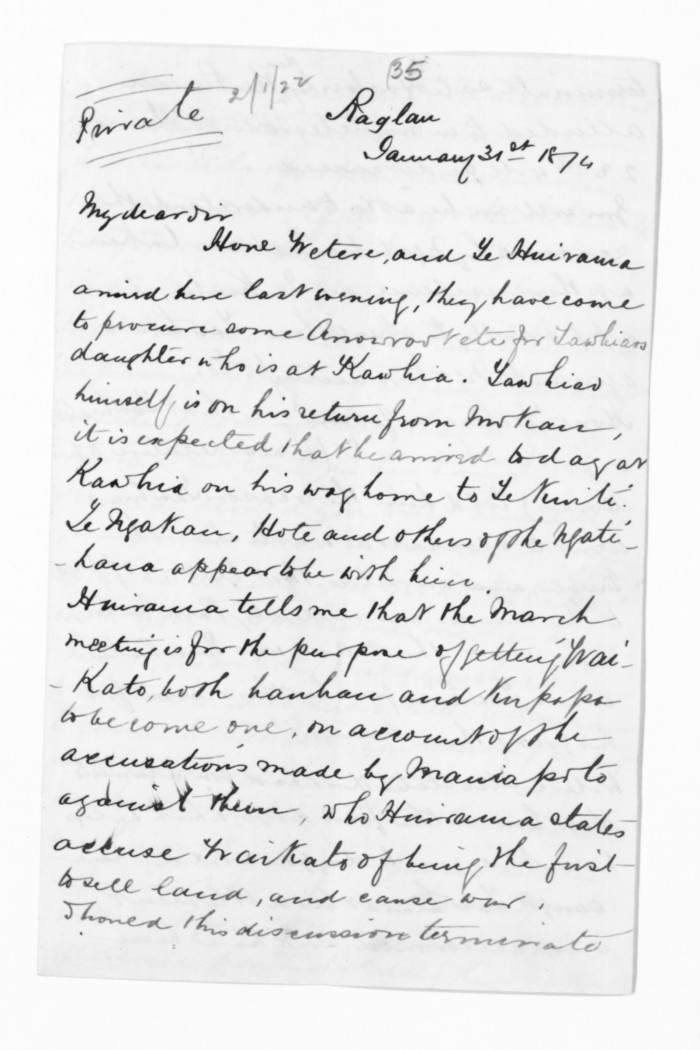 35
Private 2/1/22
Raglan
January 31st 1874
My dear sir
Hone Wetere, and Te Huirama
arrived here last evening, they have come
to procure some Arrowroot etc for Tawhiaos
daughter who is at Kawhia. Tawhiao
himself is on his return from Mokau,
it is expected that he arrived today at
Kawhia on his way home to Te Kuiti
Te Ngakau, Hote and others of the Ngati-
-hana appear to be with him.
Huirama tells me that the March
meeting is for the purpose of getting Wai-
-Kato, both hauhau and Kupapa
to become one, on account of the
accusations made by Maniapoto
against them, who Huirama states
accuse Waikato of being the first
to sell land, and cause war.
Should this discussion terminate